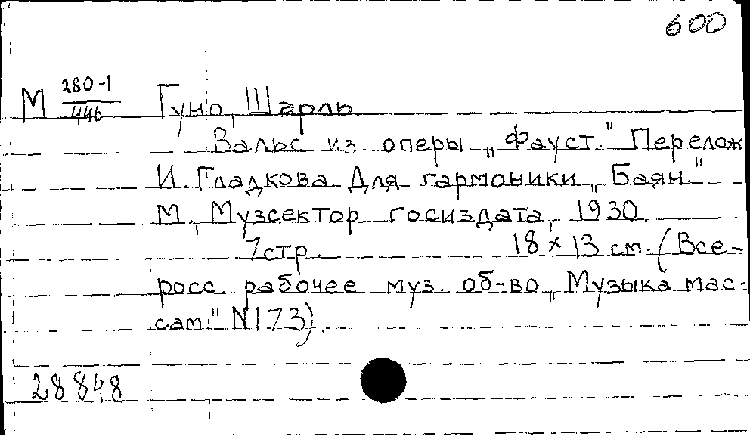 600
М 280-1/446 Гуно, Шарль
Вальс из оперы „Фауст." Перелож
И. Гладкова. Для гармоники „Баян"
М., Музсектор госиздата, 1930.
7 стр. 18 x 13 см. (Все-
росс. рабочее муз. об-во „Музыка мас-
сам." N173).
28848